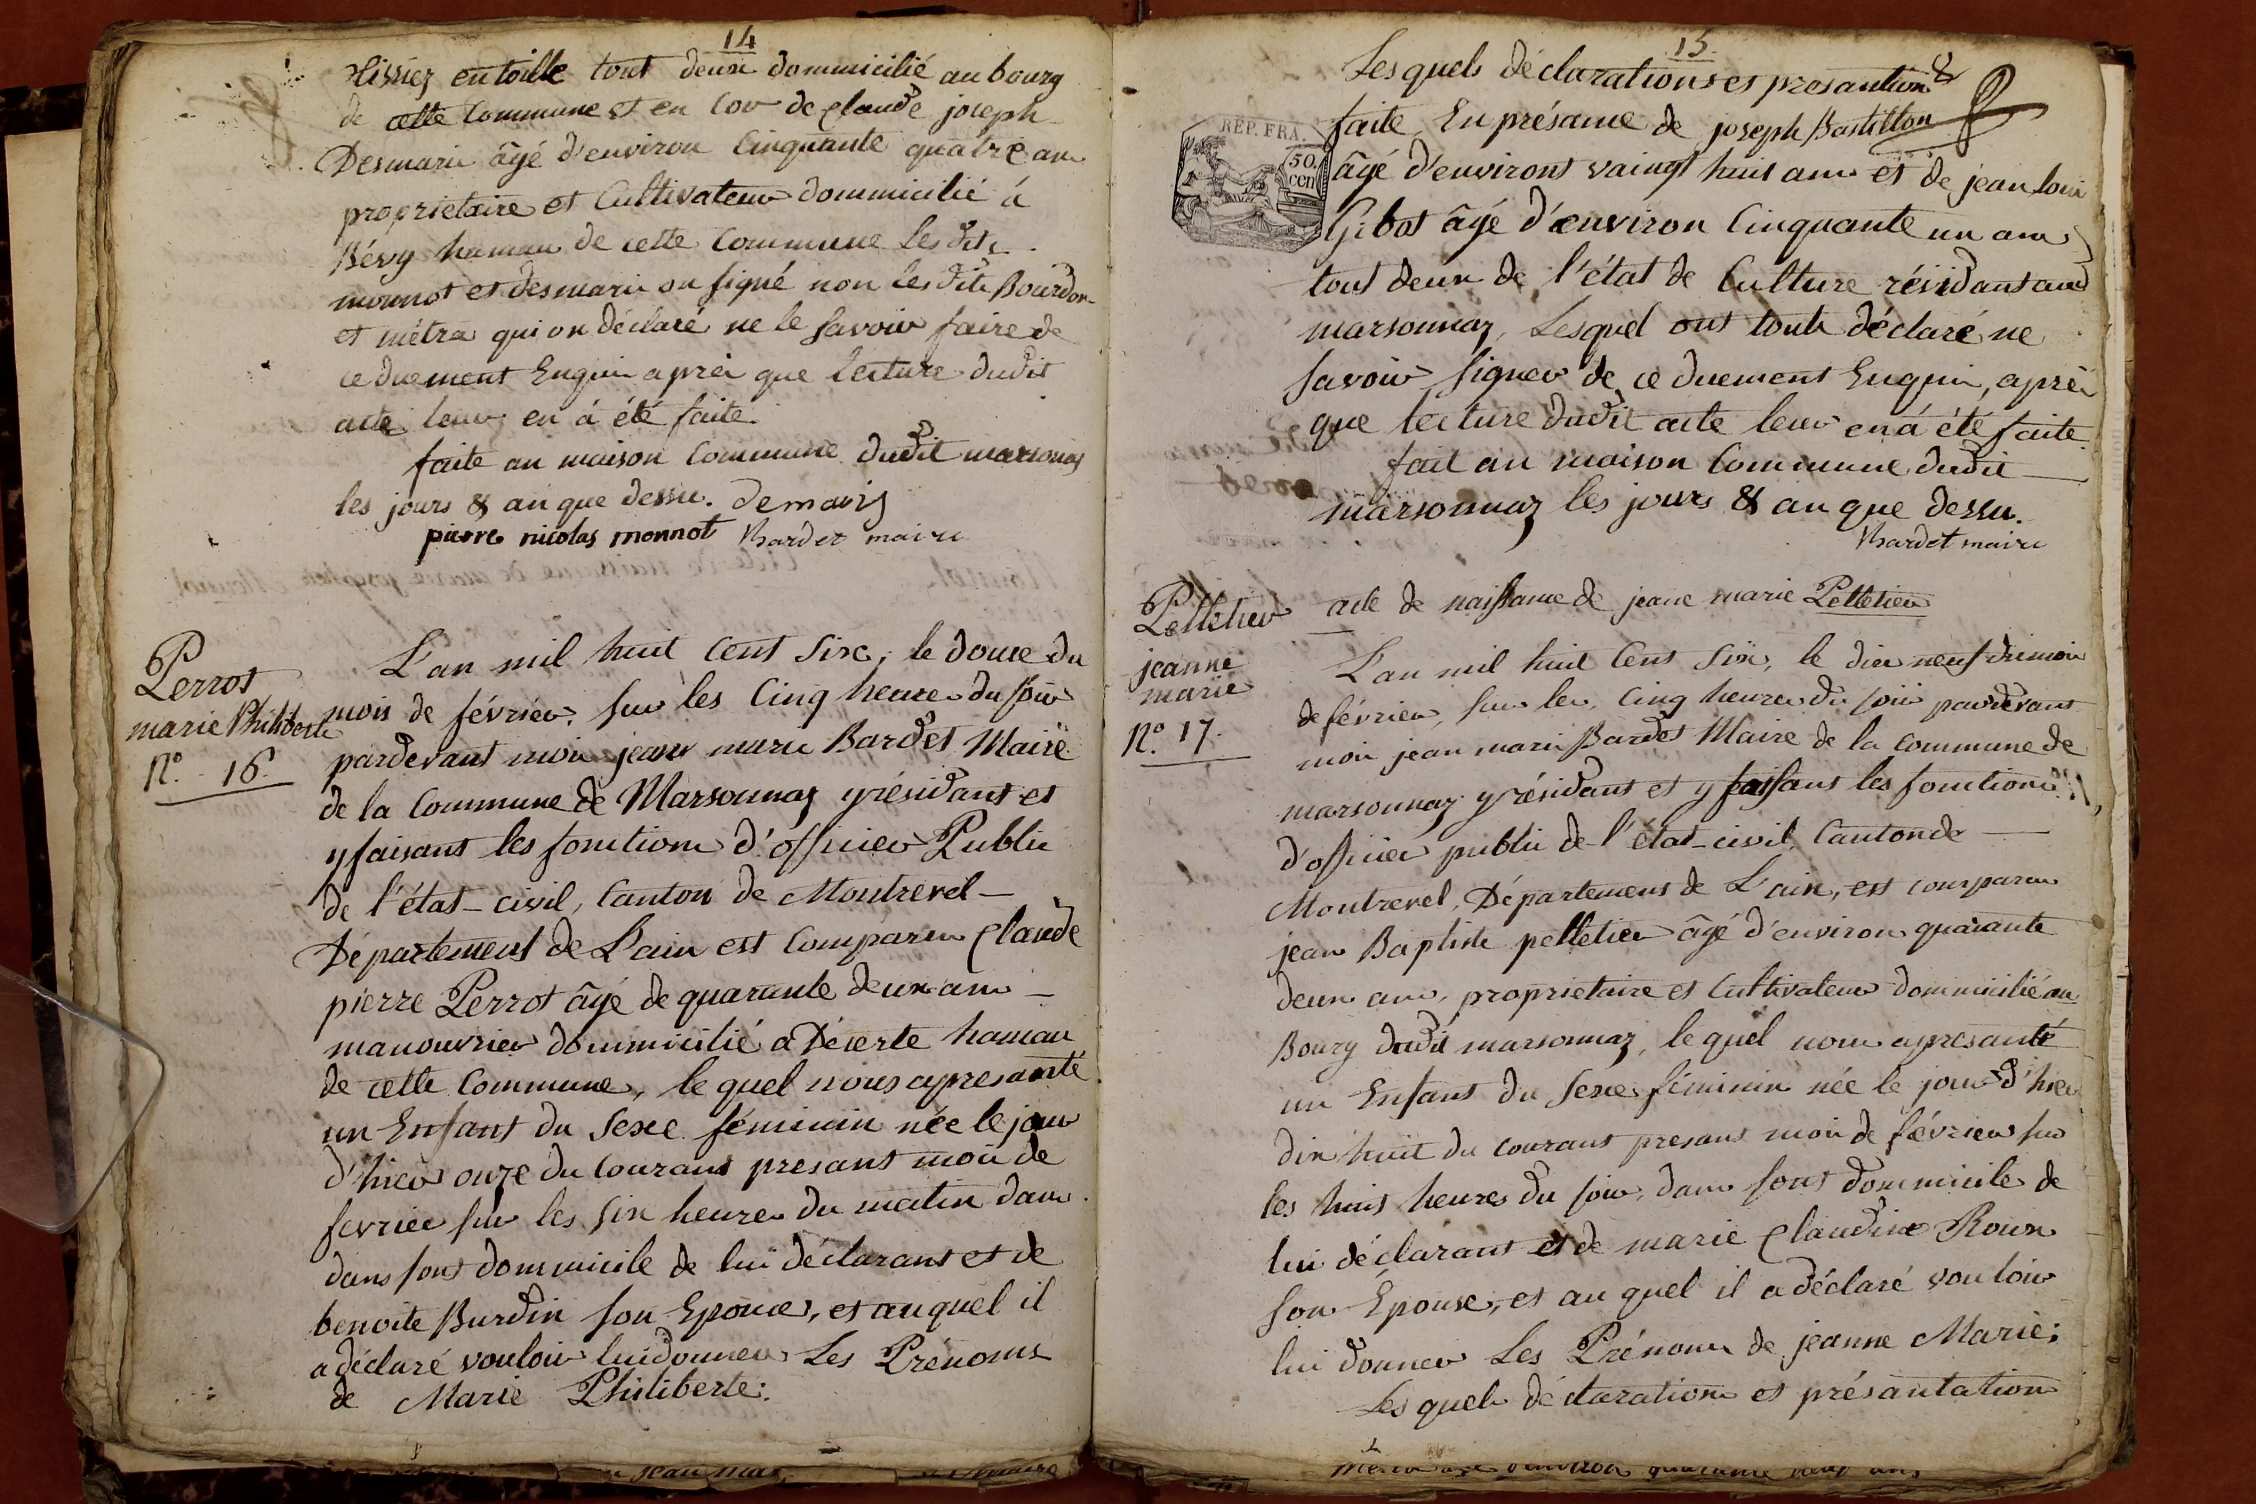 14
tissiez en toille tout deux dommicilié au bourg
de cette Commune et en cor de Claude joseph
Desmaris âgé d'environ Cinquante quatre ans
proprietaire et Cultivateur dommicilié á
Bévy hamau de cette Commune les dits
monnot et desmaris on signé non les dits Bourdon
et métra qui on déclaré ne le savoir faire de
ce duement Enquis aprés que lecture dudit
acte leur en á été faite.
faite an maison Commune dudit marsonas
les jours & an que dessu. Demaris
pierre nicolas monnot Bardet maire
Perrot
marie Philiberte
N.º 16.
L'an mil huit Cent Six, le douze du
mois de février, sur les Cinq heures du soir
pardevant moi jean marie Bardet Maire
de la Commune de Marsonnaz y résidant et
y faisant les fonctions d'officier Public
de l'état-civil, Canton de Montrevel
Département de L'ain est Comparu Claude
pierre Perrot âgé de quarante deux ans
manouvrier dommicilié a Déserte hamau
de cette Commune, le quel nous a presanté
un Enfant du Sexe féminin née le jour
d'hier onze du Courant presant mois de
fevrier sur les Six heures du matin dans
dans sont dommicile de lui déclarant et de
benoite Burdin son Epouse, et au quel il
a déclaré vouloir lui donner Les Prénoms
de Marie Philiberte:
15
Les quels déclarations et presantion
REP. FRA.
50. cen
faite En présance de joseph Bastillon
âgé d'environt vaingt huit ans et de jean loui
Gibot âgé d'environ Cinquante un ans
tout deux de l'état de Culture résidant aud
marsonnaz, Lesquel ont touts déclaré ne
savoir signer de ce duement Enquis, aprés
que lecture dudit acte leur en á été faite
fait an maison Commune dudit
marsonnaz les jours & an que dessu.
Bardet maire
Pelletier
jeanne
marie
N.º 17.
acte de naissance de jeane marie Pelletier
L'an mil huit Cent Six, le dix neuf du mois
de février, sur les Cinq heures du soir pardevant
moi jean marie Bardet Maire de la commune de
marsonnaz y résidant et y faisant les fonctions
d'officier public de l'état-civil, Canton de
Montrevel, Département de L'ain, est comparu
jean Baptiste pelletier âgé d'environ quarante
deux ans, proprietaire et Cultivateur dommicilié au
Bourg dudit marsonnaz, le quel nous a presanté
un Enfant du Sexe féminin née le jour d'hier
dix huit du courant presant mois de février sur
les huit heures du soir, dans sont dommicile de
lui déclarant et de marie Claudine Roux
son Épouse, et au quel il a déclaré vouloir
lui donner Les Prénoms de jeanne Marie:
Les quels déclarations et présantation